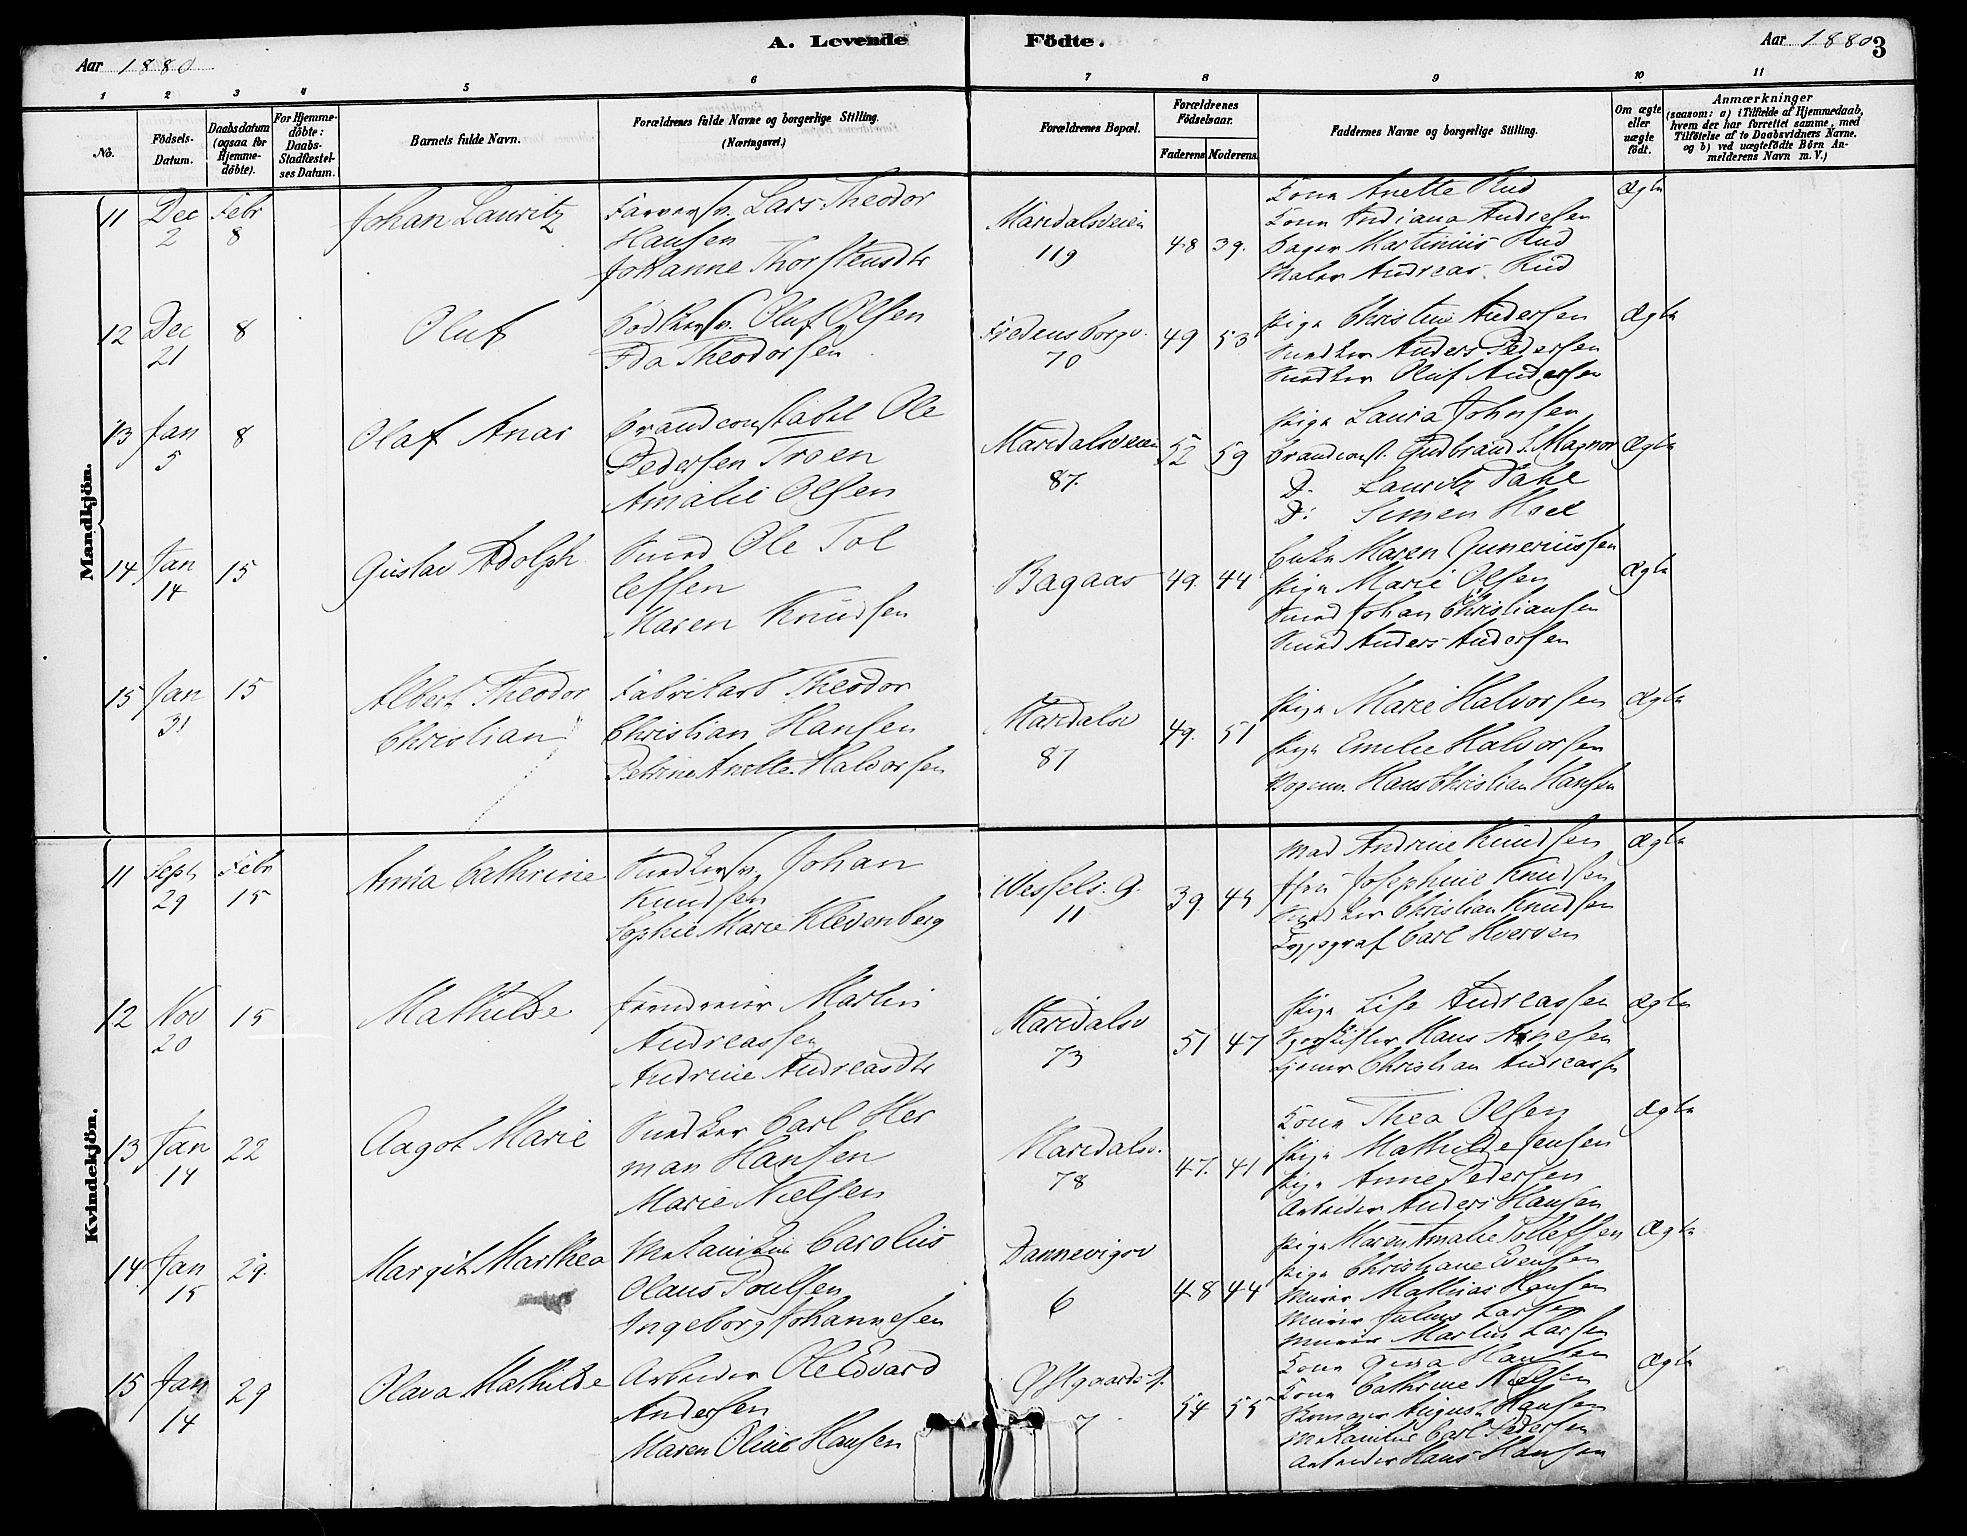 A. Levende Födte.
Aar 1880
Aar 1880 3
1 2 3 4 5 6 7 8 9 10 11
No.
Födsels-
Datum.
Daabsdatum
(ogsaa for
Hjemme-
döbte).
For Hjemme-
döbte:
Daabs-
Stadfæstel-
ses Datum.
Barnets fulde Navn.
Forældrenes fulde Navne og borgerlige Stilling.
(Næringsvei.)
Forældrenes Bopæl.
Forældrenes
Födselsaar.
Faderens Moderens
Faddernes Navne og borgerlige Stilling.
Om ægte
eller
uægte
født.
Anmærkninger
(saasom: a) i Tilfælde af Hjemmedaab,
hvem der har forrettet samme, med
Tilføielse af to Daabsvidners Navne.
og b) ved uægtefödte Börn An-
melderens Navn m. V.)
Mandkjön.
11 Dec 2 Febr 8
Johan Lauritz
Farversv. Lars Theodor
Hansen
Johanne Thorstensdtr
Maridalsveien
119
48 39.
Kone Anette Rud
Kone Andiana Andresen
Bager Martinius Rud
Maler Andreas Rud
Ægte
12 Dec 21 8
Oluf
Bödkersv. Oluf Olsen
Ida Theodorsen
Fredensborgv.
70
49 53
Pige Christine Andersen
Snedker Anders Pedersen
Snedker Oluf Andersen
Ægte
13 Jan 5 8
Olaf Anar
Brandconstabel Ole
Pedersen Troen
Amalie Olsen
Maridalsveien
87.
52 59
Pige Laura Johnsen
Brandconst. Gudbrand S. Magnor
D. Lauritz Dahl
D: Simen Hoel
Ægte
14 Jan 14 15
Gustav Adolph
Smed Ole Tol
lefsen
Maren Knudsen
Bagaas
49. 44
Enke Maren Guneriussen
Pige Marie Olsen
Smed Johan Christiansen
Smed Anders Andersen
Ægte
15 Jan 31 15
Albert Theodor
Christian
Fabrikarb Theodor
Christian Hansen
Petrine Anette Halvorsen
Maridalsv
87
49. 51
Pige Marie Halvorsen
Pige Emilie Halvorsen
Hans Christian Hansen
Ægte
Kvindekjön.
11 Sept 29 Febr 15
Anna Cathrine
Snedkersv. Johan
Knudsen
Sophie Marie Klevenberg
Wessels. g.
11
39. 45
Mad Andrine Knudsen
Josephine Knudsen
Snedker Christian Knudsen
Typograf Carl Hverven
Ægte
12 Nov 20 15
Mathilde
Jerndreier Martin
Andreassen
Andrine Andreasdtr
Maridalsv
73
51 47
Pige Lise Andreassen
Hans Arnesen
Christian Andreassen
Ægte
13 Jan 14 22
Aagot Marie
Snedker Carl Her
man Hansen
Marie Nielsen
Maridalsv.
78
47. 41
Kone Thea Olsen
Pige Mathilde Jensen
Pige Anne Pedersen
Arbeider Anders Hansen
Ægte
14. Jan 15 29.
Margit Marthea
Mekanikus Carolius
Olaus Poulsen
Ingeborg Johannesen
Dannevigsv
6
48 44
Pige Maren Amalie Tollefsen
Pige Christiane Evensen
Murer Mathias Hansen
Murer Julius Larsen
Murer Martin Larsen
Ægte
15 Jan 14 29
Olava Mathilde
Arbeider Ole Edvard
Andersen
Maren Oline Hansen
Østgaards. g.
7
54 55
Kone Gina Hansen
Kone Cathrine Nielsen
August Hansen
Mekanikus Carl Pedersen
Arbeider Hans Hansen
Ægte